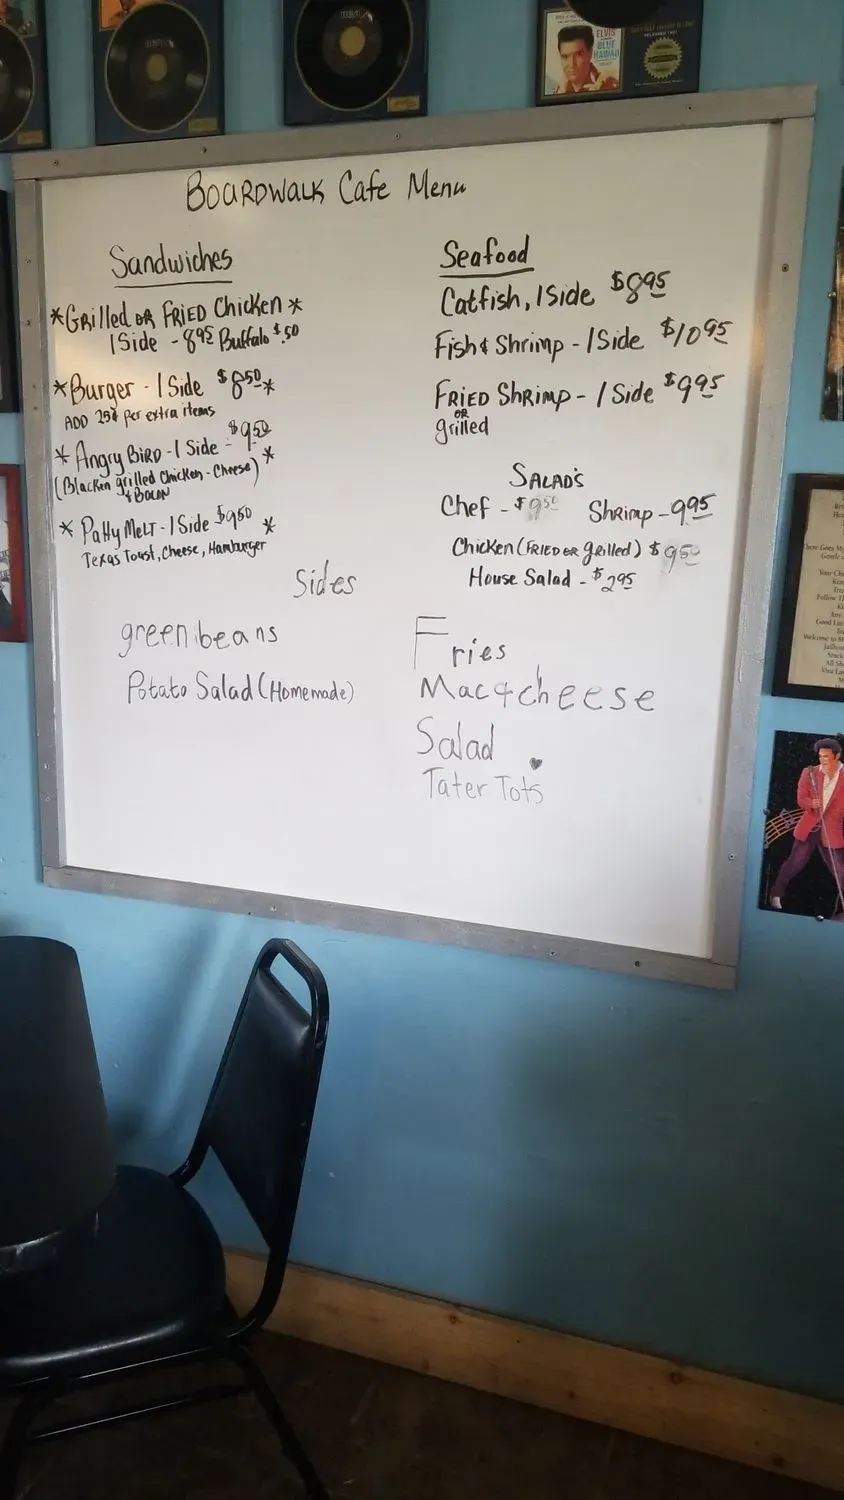 ELVIS
BLUE
HAWAII
BOARDWALK Cafe Menu
Sandwiches
*Grilled OR FRIED Chicken*
1 Side - 8.95 Buffalo $.50
*Burger - 1 Side $8.50*
ADD 25¢ per extra items
* Angry BIRD - 1 Side - $9.50 *
(Blacken grilled Chicken - Cheese)
& BACON
* Patty MELT - 1 Side $9.50 *
Texas Toast, Cheese, Hamburger
Seafood
Catfish, 1 Side $8.95
Fish & Shrimp - 1 Side $10.95
FRIED Shrimp - 1 Side $9.95
OR
grilled
SALAD'S
Chef - $9.50 Shrimp - 9.95
Chicken (FRIED OR grilled) $9.50
House Salad - $2.95
Sides
green beans
Potato Salad (Homemade)
Fries
Mac & cheese
Salad
Tater Tots